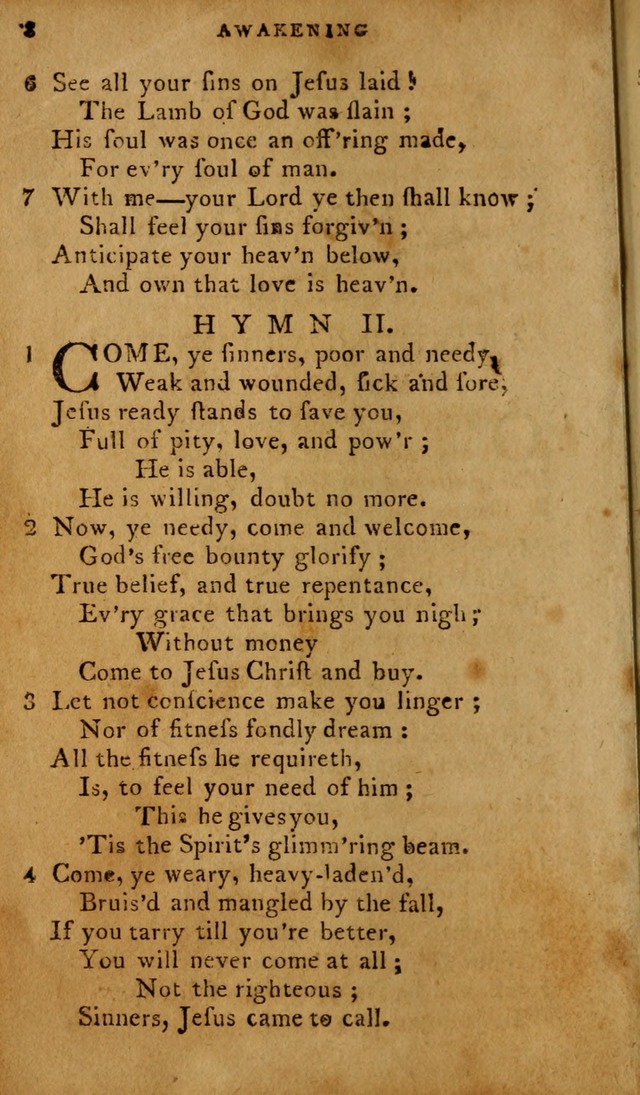 8 AWAKENING
6 See all your ſins on Jeſus laid!
The Lamb of God was ſlain ;
His ſoul was once an off'ring made,
For ev'ry ſoul of man.
7 With me—your Lord ye then ſhall know ;
Shall feel your ſins forgiv'n ;
Anticipate your heav'n below,
And own that love is heav'n.
HYMN II.
1 COME, ye ſinners, poor and needy,
Weak and wounded, ſick and ſore,
Jeſus ready ſtands to ſave you,
Full of pity, love, and pow'r ;
He is able,
He is willing, doubt no more.
2 Now, ye needy, come and welcome,
God's free bounty glorify ;
True belief, and true repentance,
Ev'ry grace that brings you nigh ;
Without money
Come to Jeſus Chriſt and buy.
3 Let not conſcience make you linger ;
Nor of fitneſs fondly dream :
All the fitneſs he requireth,
Is, to feel your need of him ;
This he gives you,
'Tis the Spirit's glimm'ring beam.
4 Come, ye weary, heavy-laden'd,
Bruis'd and mangled by the fall,
If you tarry till you're better,
You will never come at all ;
Not the righteous ;
Sinners, Jeſus came to call.